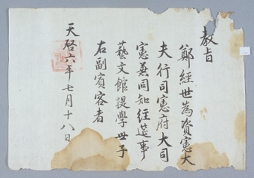 教旨
鄭經世爲資憲大
夫行司憲府大司
憲兼同知經筵事
藝文館提學世子
右副賓客者
天啓六年七月十八日